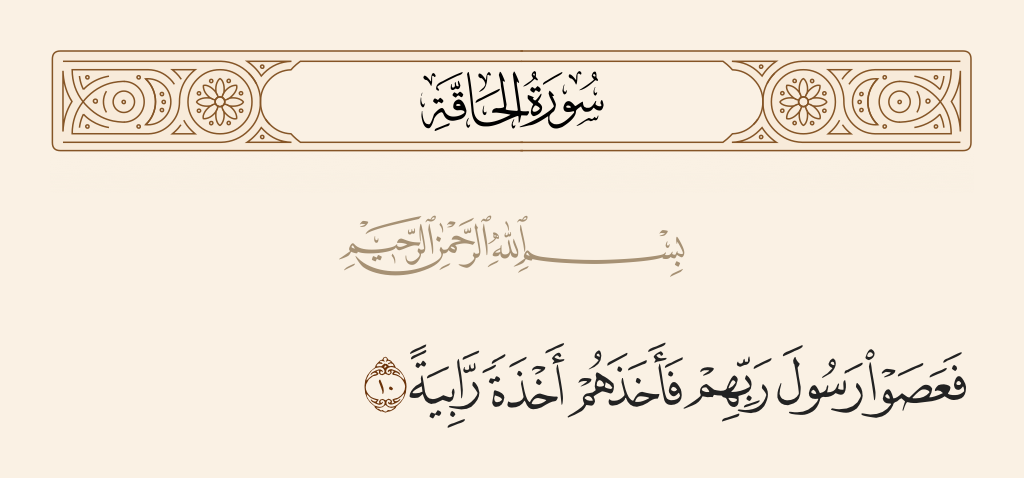 سُورَةُ الحَاقَّةِ
بِسْمِ ٱللَّهِ ٱلرَّحْمَٰنِ ٱلرَّحِيمِ
فَعَصَوْا۟ رَسُولَ رَبِّهِمْ فَأَخَذَهُمْ أَخْذَةً رَّابِيَةً ١٠